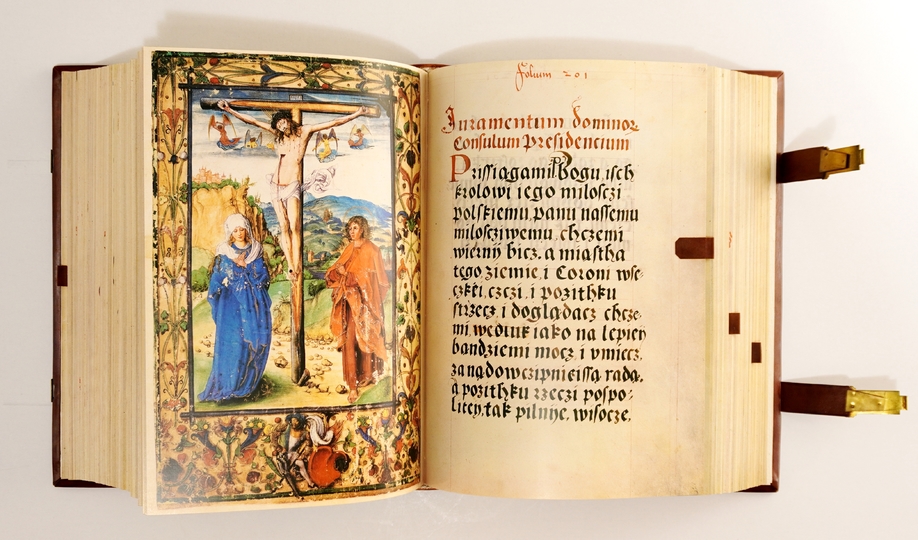 folium 201
Iuramentum dominor
Consulum Presidencium
Prissiagami Bogu, isch
krolowi iego milosczi
polskiemu panu nassemu
miloscziwemu chczemi
wiernÿ bicz, a miastha
tego ziemie, i Coroni wse-
czkei, czczi, i pozithku
strzecz i doglądacz chcze-
mi, wedluk iako na lepieÿ
bandziemi mocz, i vmiecz,
za nadowczipnieissą radą,
a pozithku rzeczi pospo-
liteÿ, tak pilnÿe, wisocze,